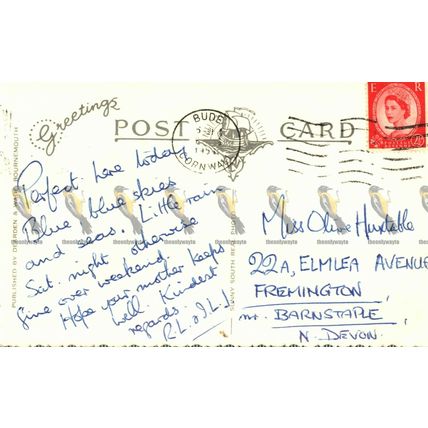 Greetings
POST CARD
BUDE
CORNWALL
E R
Perfect here today
Blue blue skies
and seas. Little rain
Sat. night otherwise
fine over weekend.
Hope your mother keeps
well. Kindest
regards.
R.L. & I.L.
Miss Olive
22A, ELMLEA AVENUE
FREMINGTON,
nr. BARNSTAPLE,
N. DEVON.
PUBLISHED BY DEARDEN & BOURNEMOUTH
SUNNY SOUTH
theonlywayto
theonlywayto
theonlywayto
theonlywayto
theonlywayto
theonlywayto